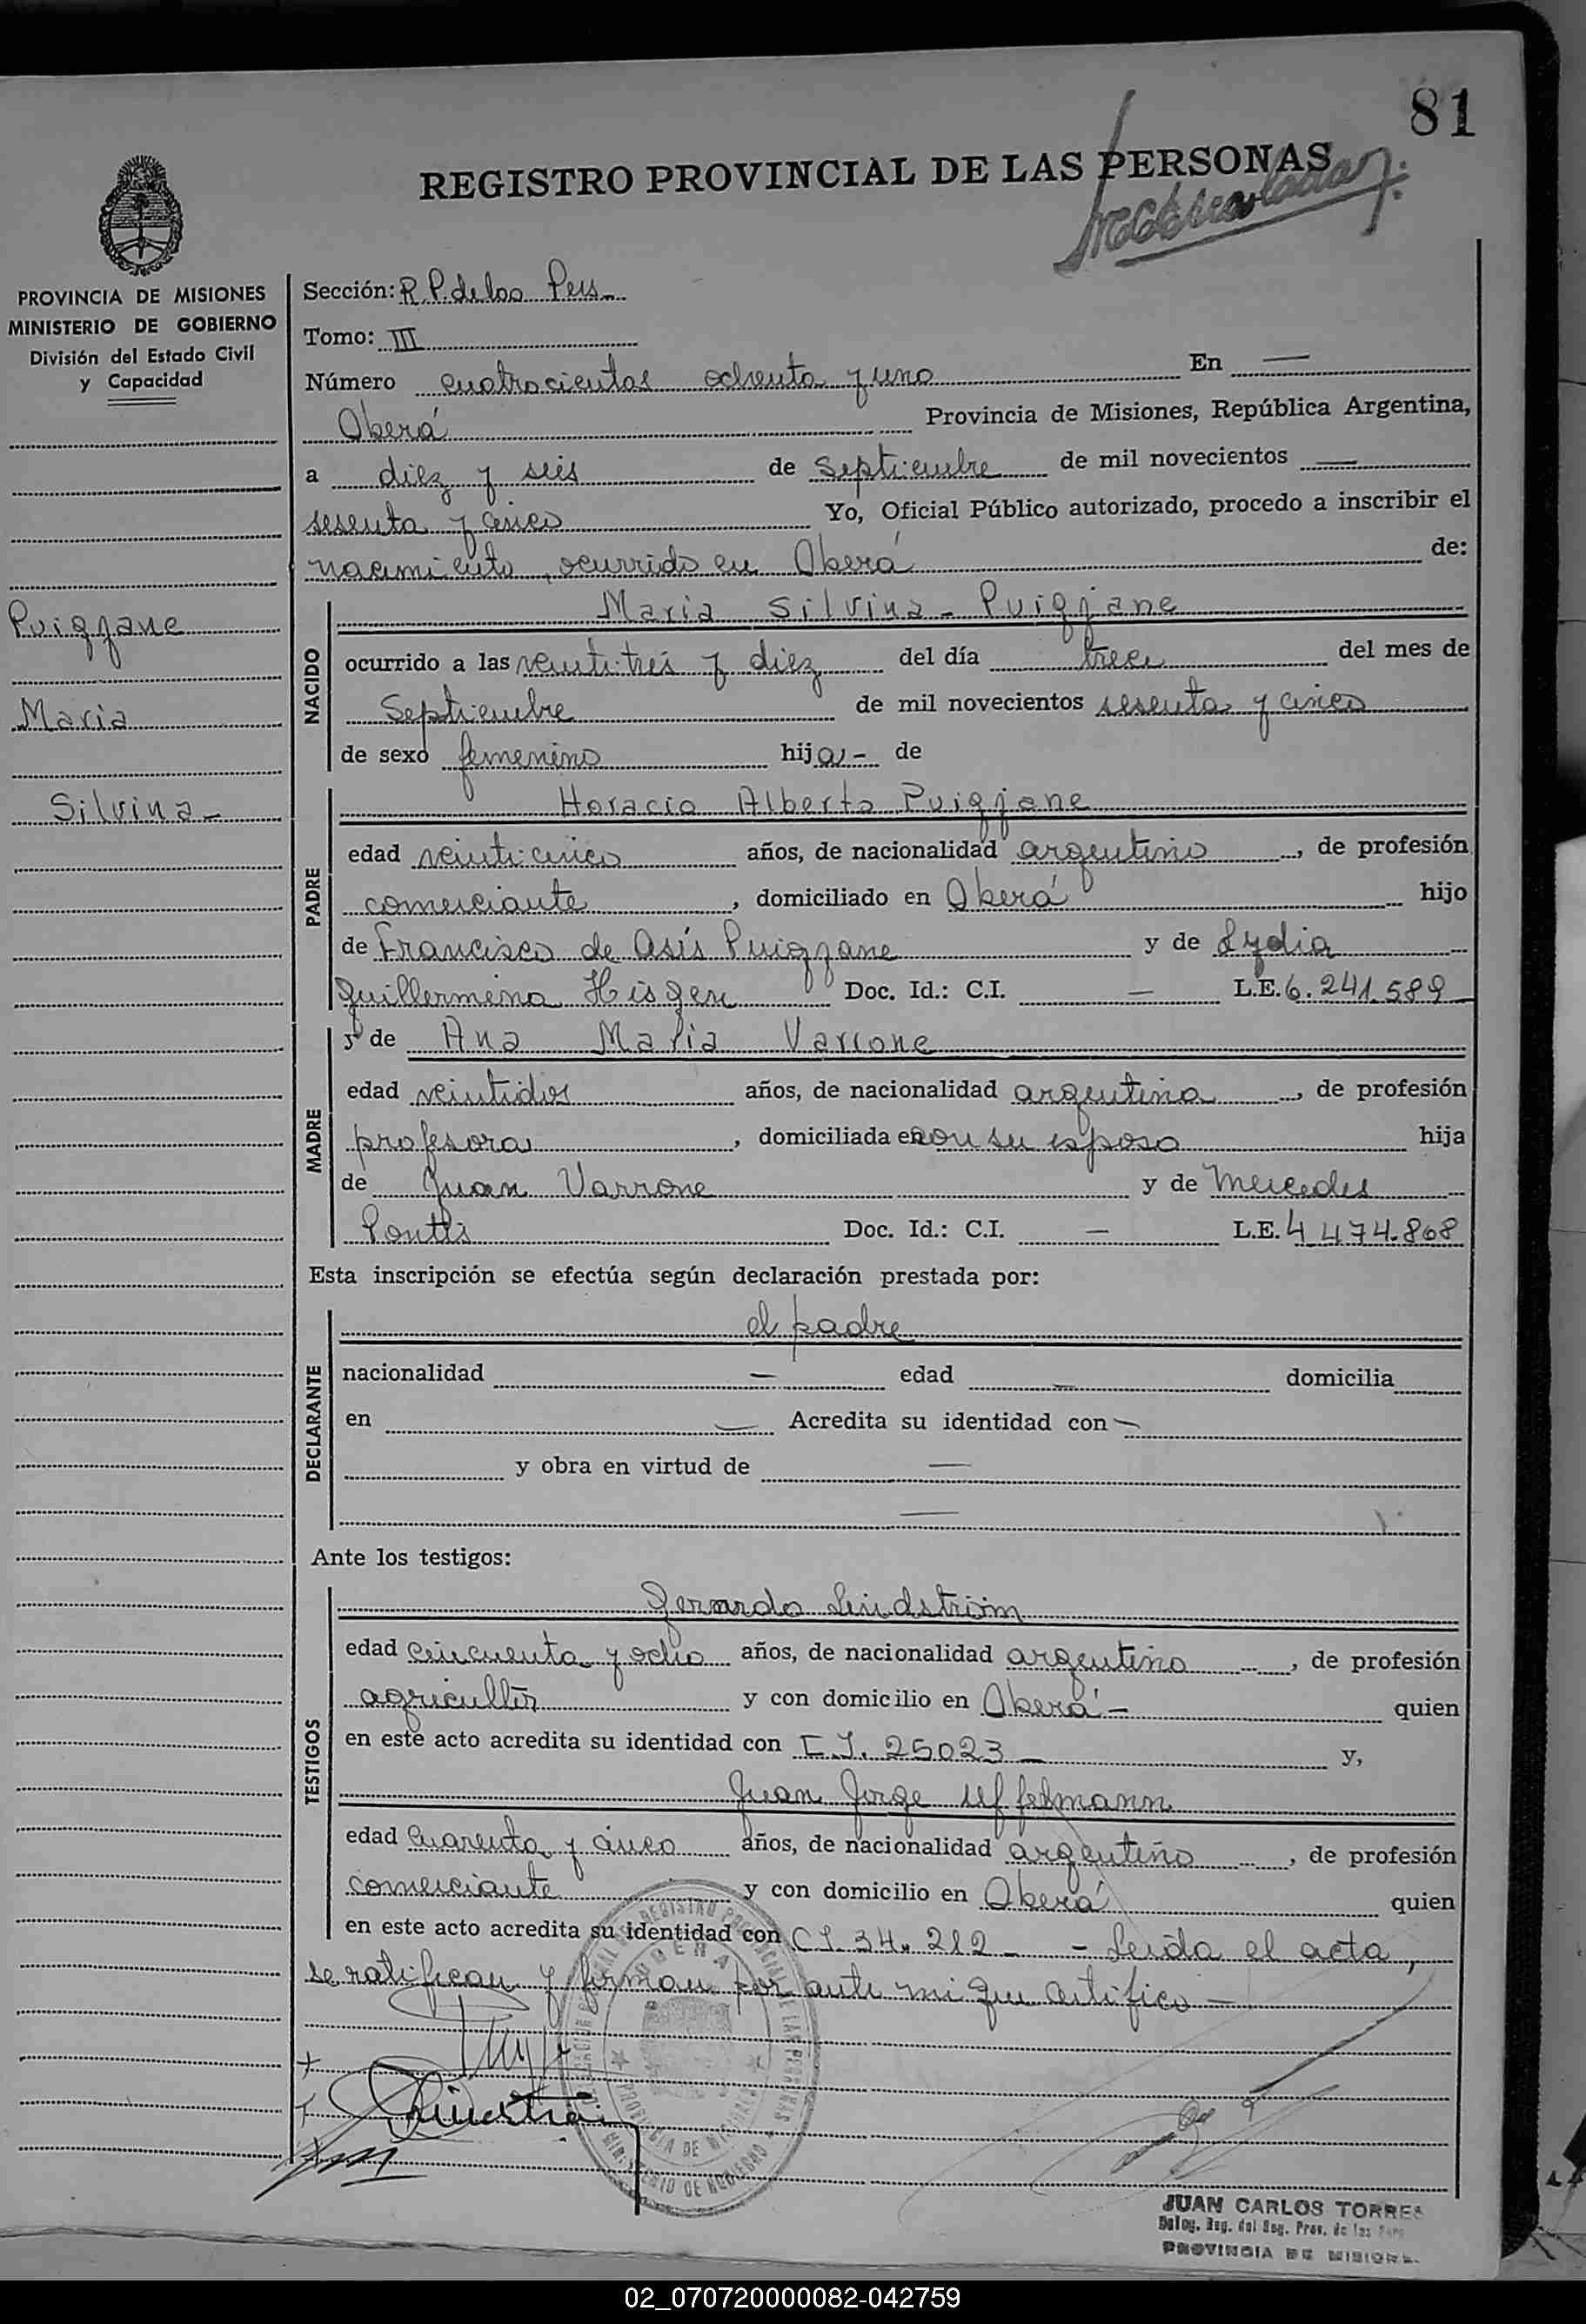 81
REGISTRO PROVINCIAL DE LAS PERSONAS
PROVINCIA DE MISIONES
MINISTERIO DE GOBIERNO
División del Estado Civil
y Capacidad
Puigjane
Maria
Silvina -
Sección: R.P. de las Pers
Tomo: III
Número cuatrocientos ochenta y uno En —
Oberá Provincia de Misiones, República Argentina,
a diez y seis de Septiembre de mil novecientos —
sesenta y cinco Yo, Oficial Público autorizado, procedo a inscribir el
nacimiento, ocurrido en Oberá de:
NACIDO
Maria Silvina - Puigjane
ocurrido a las veintitres y diez del día trece del mes de
Septiembre de mil novecientos sesenta y cinco
de sexo femenino hija - de
PADRE
Horacio Alberto Puigjane
edad veinticinco años, de nacionalidad argentino, de profesión
comerciante, domiciliado en Oberá hijo
de Francisco de Asís Puigjane y de Lydia
Guillermina Hisgen Doc. Id.: C.I. — L.E. 6.241.589
MADRE
y de Ana Maria Varrone
edad veintidos años, de nacionalidad argentina, de profesión
profesora, domiciliada en con su esposo hija
de Juan Varrone y de Mercedes
Doc. Id.: C.I. — L.E. 4.474.868
Esta inscripción se efectúa según declaración prestada por:
DECLARANTE
el padre
nacionalidad — edad — domicilia
en — Acredita su identidad con —
y obra en virtud de —
—
Ante los testigos:
TESTIGOS
Gerardo Lindström
edad cincuenta y ocho años, de nacionalidad argentino, de profesión
agricultor y con domicilio en Oberá - quien
en este acto acredita su identidad con C.I. 25023 — y,
Juan Jorge Uffelmann
edad cuarenta y cinco años, de nacionalidad argentino, de profesión
comerciante y con domicilio en Oberá quien
en este acto acredita su identidad con C.I. 34.212 - - Leida el acta,
se ratifican y firman por ante mi que certifico -
OBERA
PROVINCIA DE MISIONES
MINISTERIO DE GOBIERNO
JUAN CARLOS TORRES
PROVINCIA DE MISIONES
02_070720000082-042759